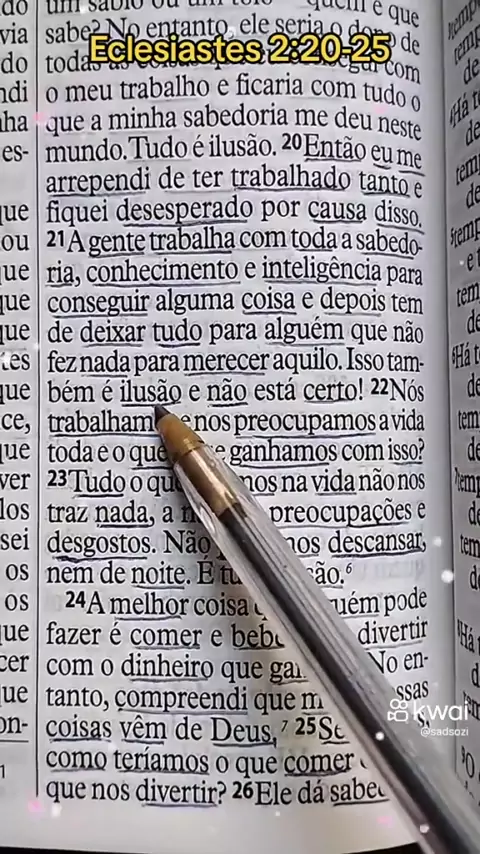 um sábio ou um quem é que
sabe? No entanto, ele seria o dono de
Eclesiastes 2:20-25
todas as com
o meu trabalho e ficaria com tudo o
que a minha sabedoria me deu neste
mundo. Tudo é ilusão. 20Então eu me
arrependi de ter trabalhado tanto e
fiquei desesperado por causa disso.
21A gente trabalha com toda a sabedo-
ria, conhecimento e inteligência para
conseguir alguma coisa e depois tem
de deixar tudo para alguém que não
fez nada para merecer aquilo. Isso tam-
bém é ilusão e não está certo! 22Nós
trabalham e nos preocupamos a vida
toda e o que ganhamos com isso?
23Tudo o que nos na vida não nos
traz nada, a preocupações e
desgostos. Não descansar,
nem de noite. É 6
24A melhor coisa pode
fazer é comer e divertir
com o dinheiro que No en-
tanto, compreendi que
coisas vêm de Deus, 7 25
como teríamos o que comer
que nos divertir? 26Ele dá
kwai
@sadsozi